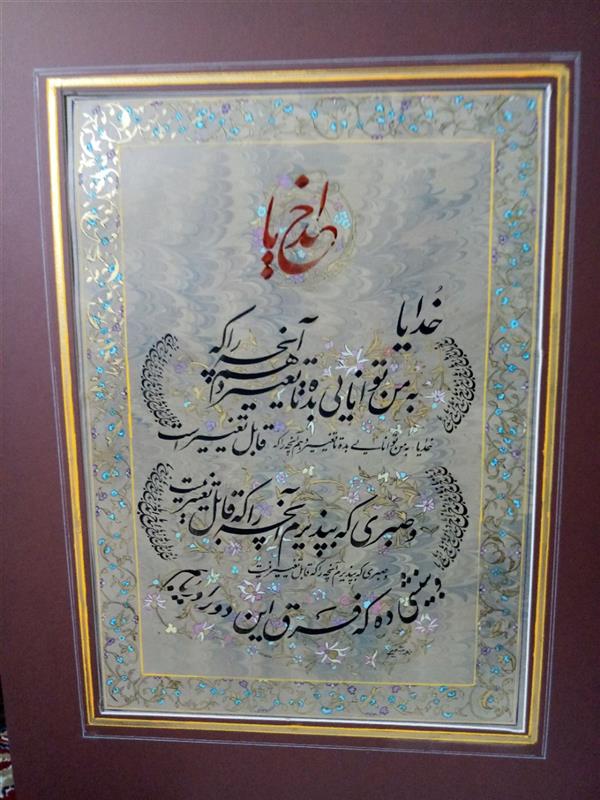 خدایا
خُدایا
به من توانایی بده تا تغییر دهم آنچه را که
قابل تغییر است
خدایا به من توانایی بده تا تغییر دهم آنچه را که
و صبری که بپذیرم آنچه را که قابل تغییر نیست
و صبری که بپذیرم آنچه را که قابل تغییر نیست
و بینشی ده که فرق این دو را